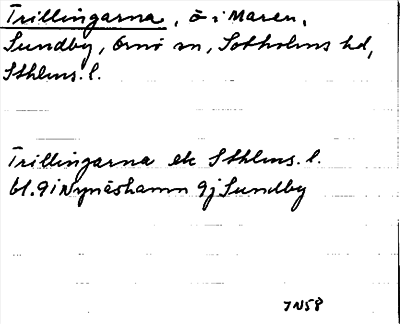 Trillingarna, ö i Maren,
Sundby, Ornö sn, Sotholms hd,
Sthlms. l.
Trillingarna ek Sthlms. l.
bl. 9i Nynäshamn 9j Sundby
7N58